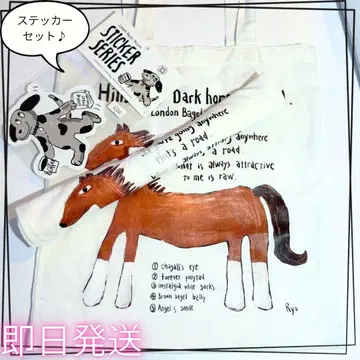 ステッカー
セット♪
STICKER
SERIES
Hi
Dark hor
London Bagel
going anywhere
anywhere
that's a road.
a road.
what is always attractive
to me is raw.
① chagall's eye
② forever ponytail
③ nostalgia white socks
④ Brown bagel belly
⑤ Angel's smile
Ryo
即日発送